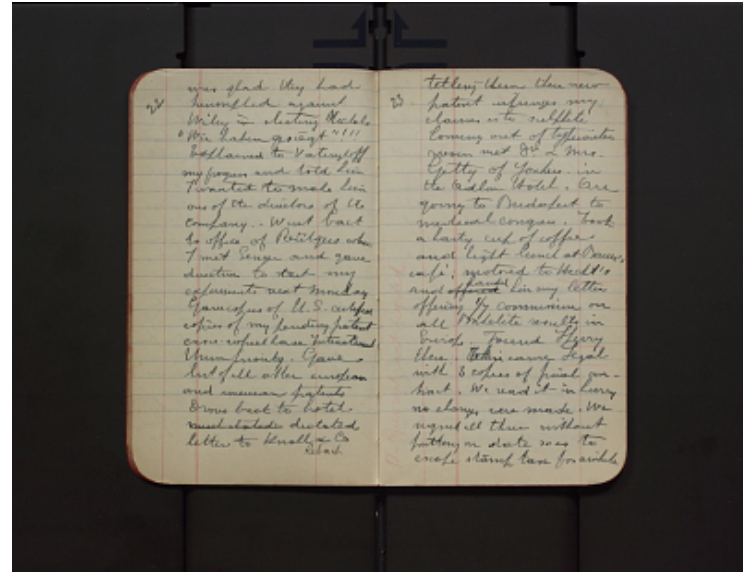 24
was glad they had
against
Wiley in electing
"Wir haben gesiegt"!!!
Explained to
my progress and told him
I wanted to make him
one of the directors of the
company. Went back
to office of Rütgers when
I met and gave
direction to start my
experiments next Monday
Gave copies of U.S. certified
copies of my pending patent
Gave
list of all other european
and patents
Drove back to hotel
dictated
letter to Knoll & Co
25
telling them their new
patent infringes my
claims as to sulphite
Coming out of typewriter
room met Dr & Mrs.
Getty of Yonkers in
the Adlon Hotel. Are
going to Budapest to
medical congress. Took
a hasty cup of coffee
and light lunch at Bauer's
café, motored to
and offered him my letter
offering commission on
all Bakelite results in
Europe. Found
there came
with 3 copies of final con-
tract. We read it in hurry
no changes were made. We
signed all three without
putting on date so as to
escape stamp tax for awhile